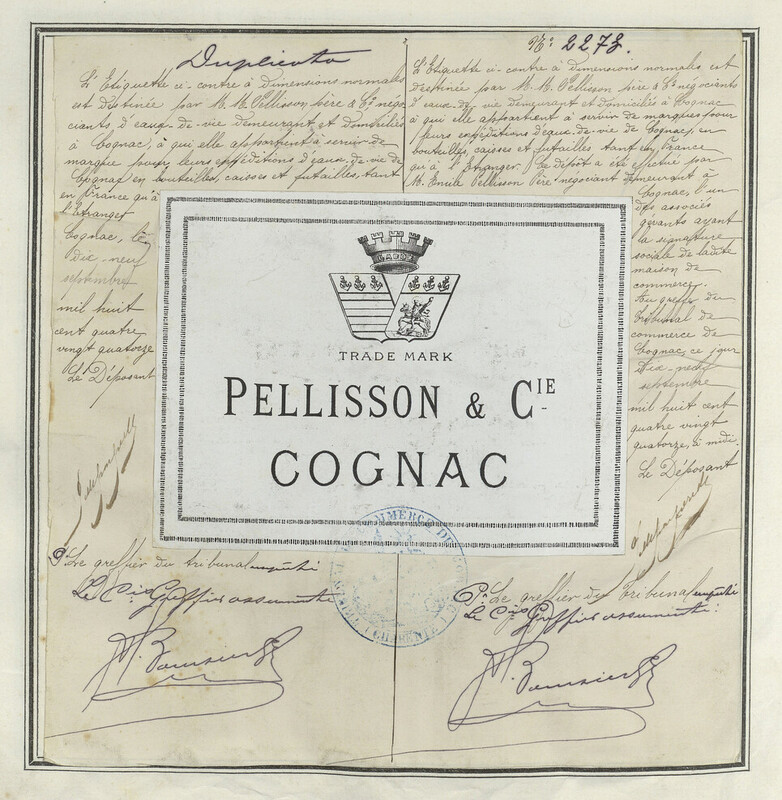 Duplicata
L'Etiquette ci-contre à dimensions normales
est destinée par M.M. Pellisson père & Cie négo-
ciants d'eaux-de-vie demeurant et domiciliés
à Cognac, à qui elle appartient à servir de
marque pour leurs expéditions d'eaux-de-vie de
Cognac en bouteilles, caisses et futailles, tant
en France qu'à
l'étranger
Cognac, le
dix-neuf
septembre
mil huit
cent quatre
vingt quatorze
Le Déposant
Pr Le greffier du tribunal empêché
Le Cis Greffier assermenté
No: 2273.
L'Etiquette ci-contre à dimensions normales est
destinée par M.M. Pellisson père & Cie négociants
d'eaux-de-vie demeurant et domiciliés à Cognac
à qui elle appartient à servir de marques pour
leurs expéditions d'eaux-de-vie de Cognac, en
bouteilles, caisses et futailles tant en France
qu'à l'Etranger. Ce dépôt a été effectué par
M. Emile Pellisson Père négociant demeurant à
Cognac, l'un
des associés
gérants ayant
la signature
sociale de ladite
maison de
commerce.
Au greffe du
Tribunal de
commerce de
Cognac, ce jour
dix-neuf
septembre
mil huit cent
quatre vingt
quatorze, à midi.
Le Déposant
Pr Le greffier du Tribunal empêché
Le Cis Greffier assermenté.
TRADE MARK
PELLISSON & CIE
COGNAC
COMMERCE DE
(CHARENTE)